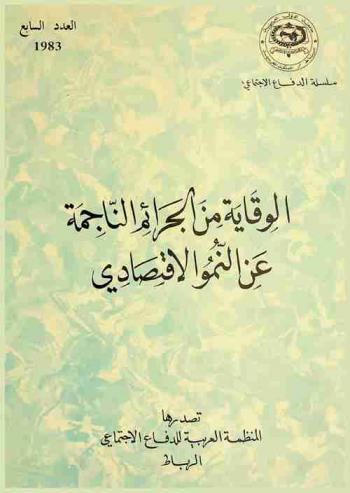 العدد السابع
1983
سلسلة الدفاع الاجتماعي
الوِقَايَة مِنَ الجَرائِم النَّاجِمَة
عَنِ النُّمُو الاقتِصَادِي
تصدرها
المنظمة العربية للدفاع الاجتماعي
الرباط